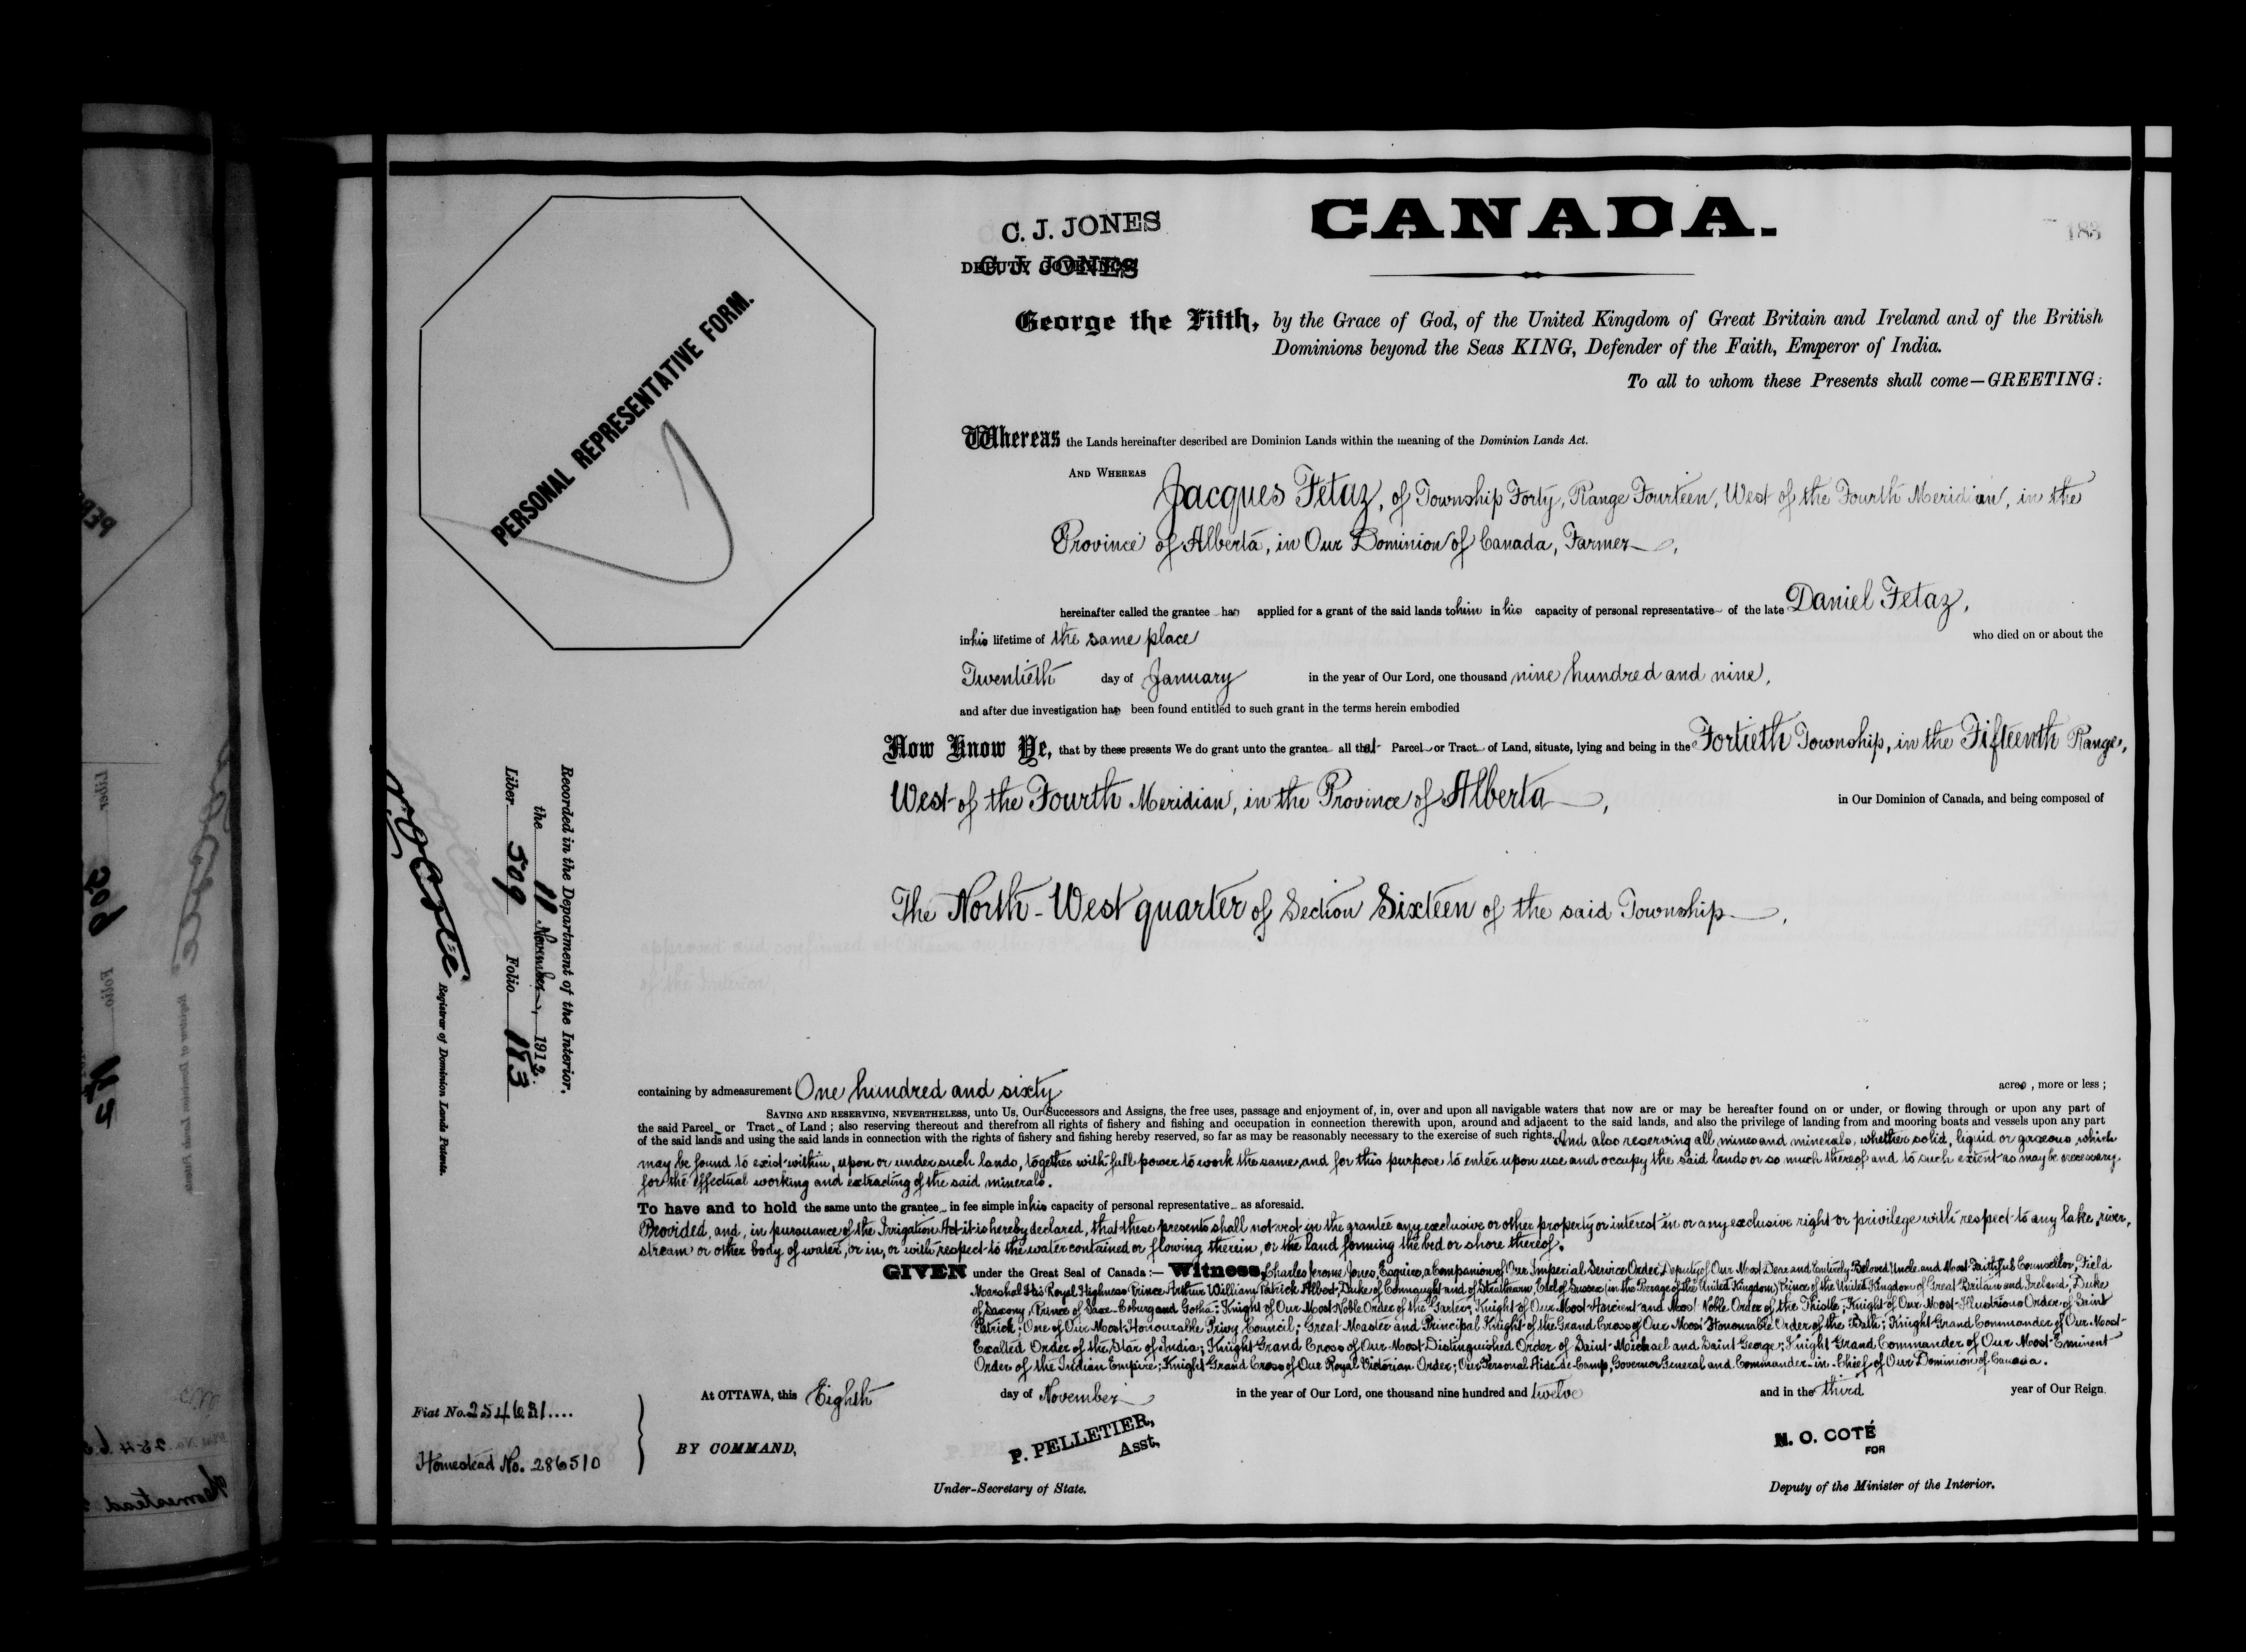 CANADA.
183
C. J. JONES
DEPUTY GOVERNOR
C. J. JONES
PERSONAL REPRESENTATIVE FORM.
George the Fifth, by the Grace of God, of the United Kingdom of Great Britain and Ireland and of the British
Dominions beyond the Seas KING, Defender of the Faith, Emperor of India.
To all to whom these Presents shall come—GREETING:
Whereas the Lands hereinafter described are Dominion Lands within the meaning of the Dominion Lands Act.
AND WHEREAS Jacques Fetaz, of Township Forty, Range Fourteen, West of the Fourth Meridian, in the
Province of Alberta, in Our Dominion of Canada, Farmer,
hereinafter called the grantee has applied for a grant of the said lands to him in his capacity of personal representative of the late Daniel Fetaz,
in his lifetime of the same place who died on or about the
Twentieth day of January in the year of Our Lord, one thousand nine hundred and nine,
and after due investigation has been found entitled to such grant in the terms herein embodied
Now Know Ye, that by these presents We do grant unto the grantee all that Parcel or Tract of Land, situate, lying and being in the Fortieth Township, in the Fifteenth Range,
West of the Fourth Meridian, in the Province of Alberta, in Our Dominion of Canada, and being composed of
The North-West quarter of Section Sixteen of the said Township,
containing by admeasurement One hundred and sixty acres, more or less;
SAVING AND RESERVING, NEVERTHELESS, unto Us, Our Successors and Assigns, the free uses, passage and enjoyment of, in, over and upon all navigable waters that now are or may be hereafter found on or under, or flowing through or upon any part of
the said Parcel or Tract of Land; also reserving thereout and therefrom all rights of fishery and fishing and occupation in connection therewith upon, around and adjacent to the said lands, and also the privilege of landing from and mooring boats and vessels upon any part
of the said lands and using the said lands in connection with the rights of fishery and fishing hereby reserved, so far as may be reasonably necessary to the exercise of such rights. And also reserving all mines and minerals, whether solid, liquid or gaseous which
may be found to exist within, upon or under such lands, together with full power to work the same, and for this purpose to enter upon use and occupy the said lands or so much thereof and to such extent as may be necessary
for the effectual working and extracting of the said minerals.
To have and to hold the same unto the grantee in fee simple in his capacity of personal representative as aforesaid.
Provided, and, in pursuance of the Irrigation Act it is hereby declared, that these presents shall not vest in the grantee any exclusive or other property or interest in or any exclusive right or privilege with respect to any lake, river,
stream or other body of water, or in, or with respect to the water contained or flowing therein, or the land forming the bed or shore thereof.
GIVEN under the Great Seal of Canada:— Witness, Charles Jerome Jones, Esquire, a Companion of Our Imperial Service Order, Deputy of Our Most Dear and Entirely Beloved Uncle and Most Faithful Counsellor, Field
Marshal His Royal Highness Prince Arthur William Patrick Albert, Duke of Connaught and of Strathearn, Earl of Sussex (in the Peerage of the United Kingdom) Prince of the United Kingdom of Great Britain and Ireland, Duke
of Saxony, Prince of Saxe-Coburg and Gotha; Knight of Our Most Noble Order of the Garter; Knight of Our Most Ancient and Most Noble Order of the Thistle; Knight of Our Most Illustrious Order of Saint
Patrick; One of Our Most Honourable Privy Council; Great Master and Principal Knight of the Grand Cross of Our Most Honourable Order of the Bath; Knight Grand Commander of Our Most
Exalted Order of the Star of India; Knight Grand Cross of Our Most Distinguished Order of Saint Michael and Saint George; Knight Grand Commander of Our Most Eminent
Order of the Indian Empire; Knight Grand Cross of Our Royal Victorian Order; Our Personal Aide-de-Camp, Governor General and Commander-in-Chief of Our Dominion of Canada.
At OTTAWA, this Eighth day of November in the year of Our Lord, one thousand nine hundred and twelve and in the third year of Our Reign.
BY COMMAND,
P. PELLETIER,
Asst.
Under-Secretary of State.
N. O. COTÉ
FOR
Deputy of the Minister of the Interior.
Fiat No. 254681....
Homestead No. 286510
Recorded in the Department of the Interior,
the 11 November, 1912.
Liber 509 Folio 183
N. O. Coté
Registrar of Dominion Lands Patents.